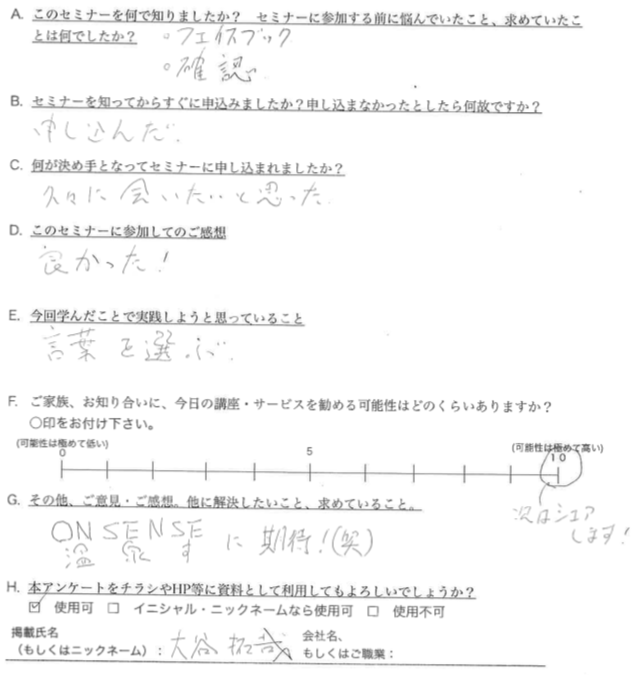 A. このセミナーを何で知りましたか？　セミナーに参加する前に悩んでいたこと、求めていたこ
とは何でしたか？ ○フェイスブック
○確認
B. セミナーを知ってからすぐに申込みましたか？申し込まなかったとしたら何故ですか？
申し込んだ.
C. 何が決め手となってセミナーに申し込まれましたか？
久々に会いたいと思った.
D. このセミナーに参加してのご感想
良かった!
E. 今回学んだことで実践しようと思っていること
言葉を選ぶ.
F. ご家族、お知り合いに、今日の講座・サービスを勧める可能性はどのくらいありますか？
○印をお付け下さい。
(可能性は極めて低い) (可能性は極めて高い)
0 5 10
G. その他、ご意見・ご感想。他に解決したいこと、求めていること。
次はシェア
します!
ON SENSE に期待!(笑)
温 泉 す
H. 本アンケートをチラシやHP等に資料として利用してもよろしいでしょうか？
☑ 使用可 □ イニシャル・ニックネームなら使用可 □ 使用不可
掲載氏名
(もしくはニックネーム)： 大谷 拓哉
会社名、
もしくはご職業：